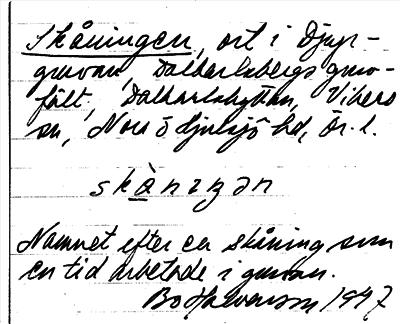 Skåningen, ort i Djup-
gruvan, Dalkarlsbergs gruv-
fält, Dalkarlshyttan, Vikers
sn, Nora o Hjulsjö hd, Ör. l.
skå̀niŋən
Namnet efter en skåning som
en tid arbetade i gruvan.
Bo Halvarson 1947